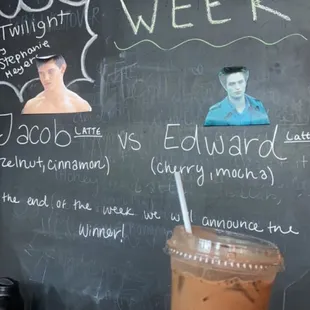 Twilight
WEEK
Stephanie
Meyer
Jacob LATTE vs Edward Latte
(cherry, mocha)
the end of the week we will announce the
Winner!